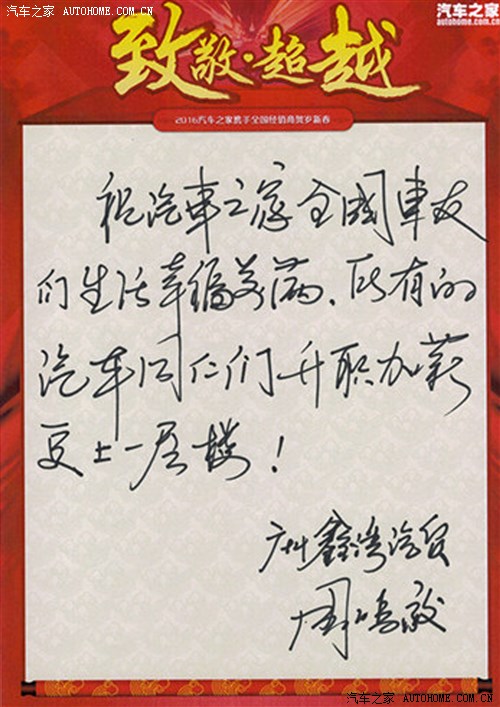 汽车之家 AUTOHOME.COM.CN
汽车之家
autohome.com.cn
致敬·超越
2016汽车之家携手全国经销商贺岁新春
祝汽车之家全國車友
们生活幸福美满、所有的
汽车同仁们升职加薪
更上一层楼！
广州鑫湾汽贸
周鸣
汽车之家 AUTOHOME.COM.CN